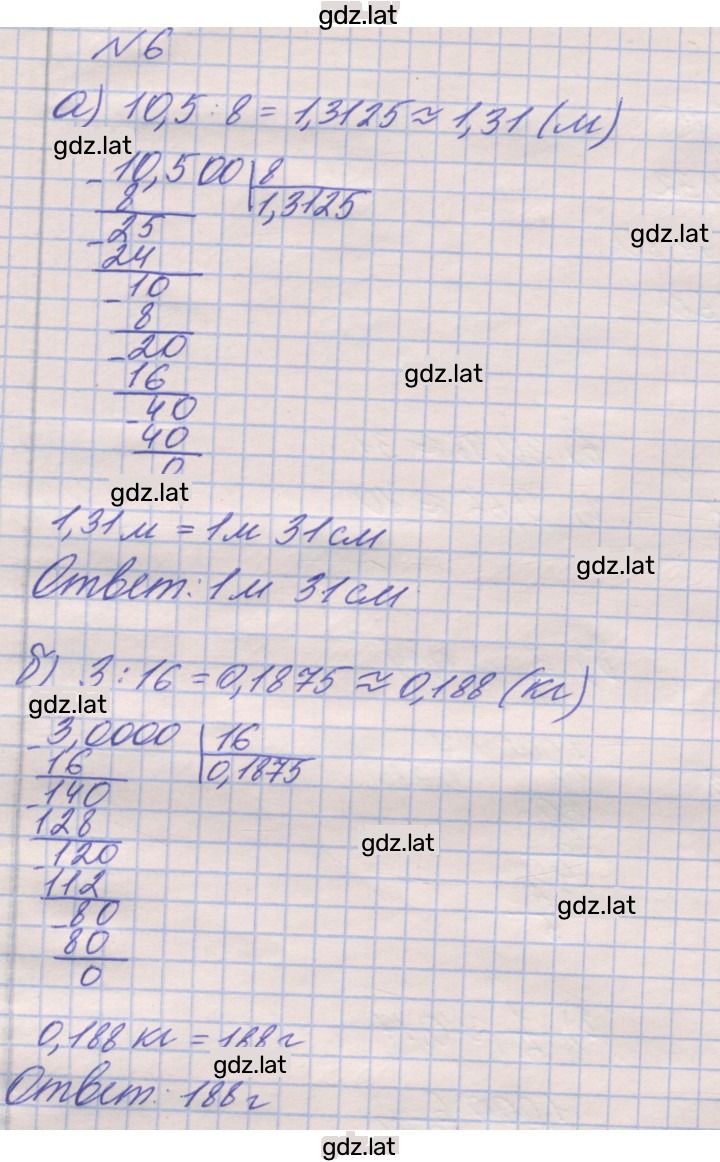 gdz.lat
№6
а) 10,5 : 8 = 1,3125 ≈ 1,31 (м)
gdz.lat
- 10,500 | 8
8 | 1,3125
- 25
gdz.lat
24
- 10
8
- 20
gdz.lat
16
- 40
40
0
gdz.lat
1,31 м = 1 м 31 см
gdz.lat
Ответ: 1 м 31 см
б) 3 : 16 = 0,1875 ≈ 0,188 (кг)
gdz.lat
- 3,0000 | 16
16 | 0,1875
- 140
128
gdz.lat
- 120
112
- 80
gdz.lat
80
0
0,188 кг = 188 г
gdz.lat
Ответ: 188 г
gdz.lat